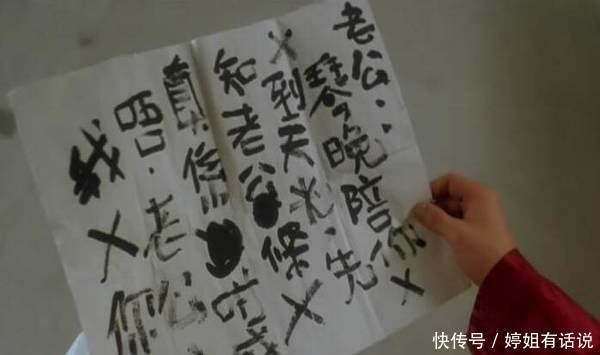 老公：
琴晚陪你X
X到天光，先
知老公條X
真係
唔．老公
我X你
快传号 / 婷姐有话说